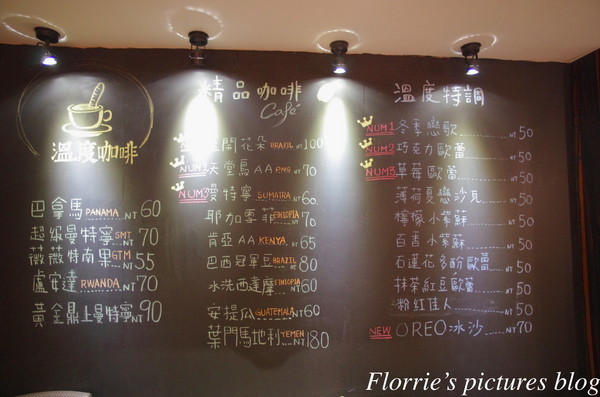 溫度咖啡
巴拿馬 PANAMA NT 60
超級曼特寧 SMT NT 70
薇薇特南果 GTM NT 55
盧安達 RWANDA NT 70
黃金鼎上曼特寧 NT 90
精品咖啡
Café
花朵 BRAZIL NT 100
NUM1 天堂鳥AA PNG NT 70
NUM3 曼特寧 SUMATRA NT 60
耶加雪菲 ETHIOPIA NT 70
肯亞AA KENYA NT 65
巴西冠軍豆 BRAZIL NT 80
水洗西達摩 ETHIOPIA NT 60
安提瓜 GUATEMALA NT 60
葉門馬地利 YEMEN NT 180
溫度特調
NUM1 冬季戀歌 NT 50
NUM2 巧克力歐蕾 NT 50
NUM3 草莓歐蕾 NT 50
薄荷夏戀沙瓦 NT 50
檸檬小紫蘇 NT 50
百香小紫蘇 NT 50
石蓮花多酚歐蕾 NT 50
抹茶紅豆歐蕾 NT 50
粉紅佳人 NT 50
NEW OREO冰沙 NT 70
Florrie's pictures blog